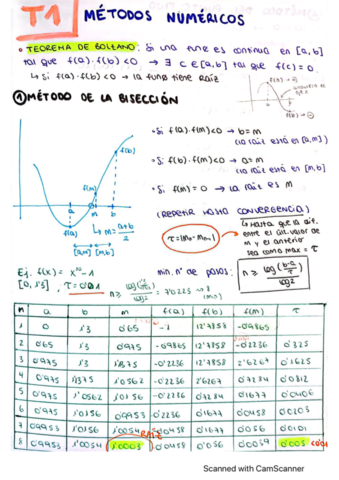 T1 MÉTODOS NUMÉRICOS
• TEOREMA DE BOLZANO: Si una func es continua en [a,b]
tal que f(a)·f(b)<0 → ∃ c∈[a,b] tal que f(c)=0.
↳ Si f(a)·f(b)<0 → la func tiene Raíz
f(b)→
f(b)→
① MÉTODO DE LA BISECCIÓN
• Si f(a)·f(m)<0 → b=m
(la raíz está en [a,m])
• Si f(b)·f(m)<0 → a=m
(la raíz está en [m,b])
• Si f(m)=0 → la raíz es m
f(b)
f(m)
a
m
b
f(a)
m=a+b/2
[a,m] [m,b]
(REPETIR HASTA CONVERGENCIA)
τ=|mn-mn-1|
↳ Hasta que la dif.
entre el últ. valor de
m y el anterior
sea como max = τ
Ej. f(x)= x¹⁰-1
[0, 1'3], τ=0'01
min. nº de pasos:
n ≥ log((b-a)/τ)/log2
m a b m f(a) f(b) f(m) τ
1 0 1'3 0'65 -1 12'7858 -0'9865
2 0'65 1'3 0'975 -0'9865 12'7858 -0'2236 0'325
3 0'975 1'3 1'1375 -0'2236 12'7858 2'6267 0'1625
4 0'975 1'1375 1'0562 -0'2236 2'6267 0'7284 0'0812
5 0'975 1'0562 1'0156 -0'2236 0'7284 0'1677 0'0406
6 0'975 1'0156 0'9953 -0'2236 0'1677 -0'0458 0'0203
7 0'9953 1'0156 1'0054 -0'0458 0'1677 0'056 0'0101
RAÍZ
8 0'9953 1'0054 1'0003 -0'0458 0'0039 0'005 <0'01
Scanned with CamScanner